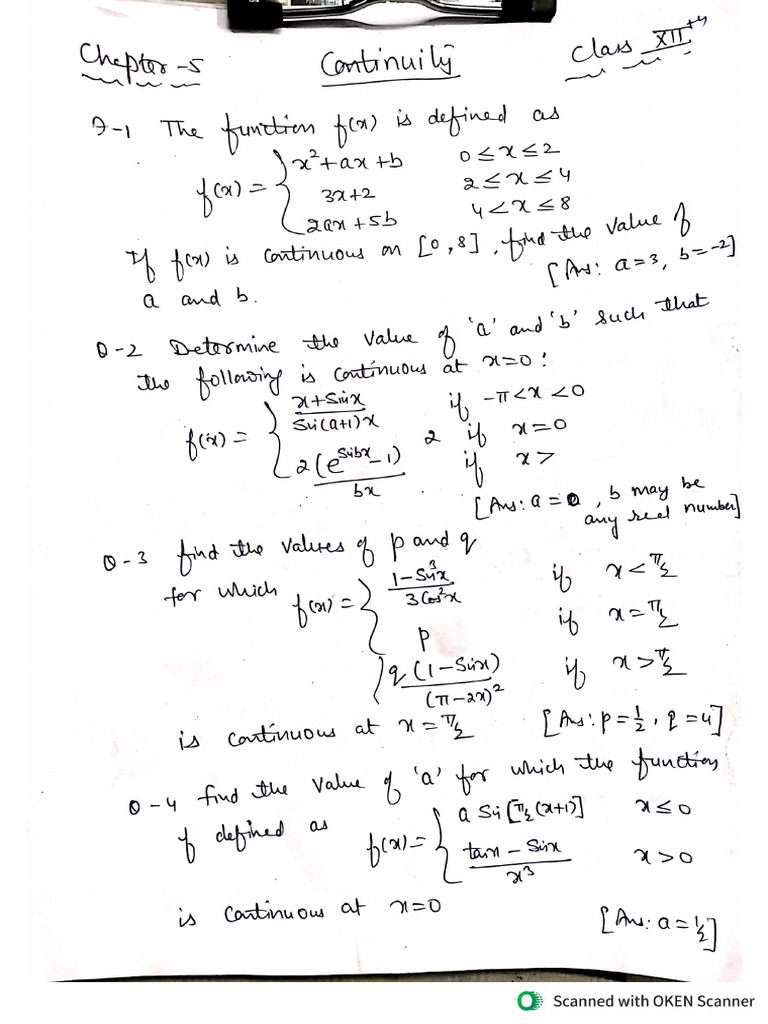 Chapter-5 Continuity Class XII+h
Q-1 The function f(x) is defined as
f(x) = { x²+ax+b 0≤x≤2
3x+2 2≤x≤4
2ax+5b 4<x≤8
If f(x) is continuous on [0,8], find the value of
a and b. [Ans: a=3, b=-2]
Q-2 Determine the value of 'a' and 'b' such that
the following is continuous at x=0:
f(x) = { x+Sinx / Sin(a+1)x if -π<x<0
2 if x=0
2(e^Sinbx -1) / bx if x>
[Ans: a=0, b may be
any real number]
Q-3 find the values of p and q
for which f(x) = { 1-Sin³x / 3Cos²x if x<π/2
p if x=π/2
q(1-Sinx) / (π-2x)² if x>π/2
is continuous at x=π/2 [Ans: p=1/2, q=4]
Q-4 find the value of 'a' for which the function
f defined as f(x) = { a Sin[π/2(x+1)] x≤0
tanx - Sinx / x³ x>0
is continuous at x=0 [Ans: a=1/2]
Scanned with OKEN Scanner